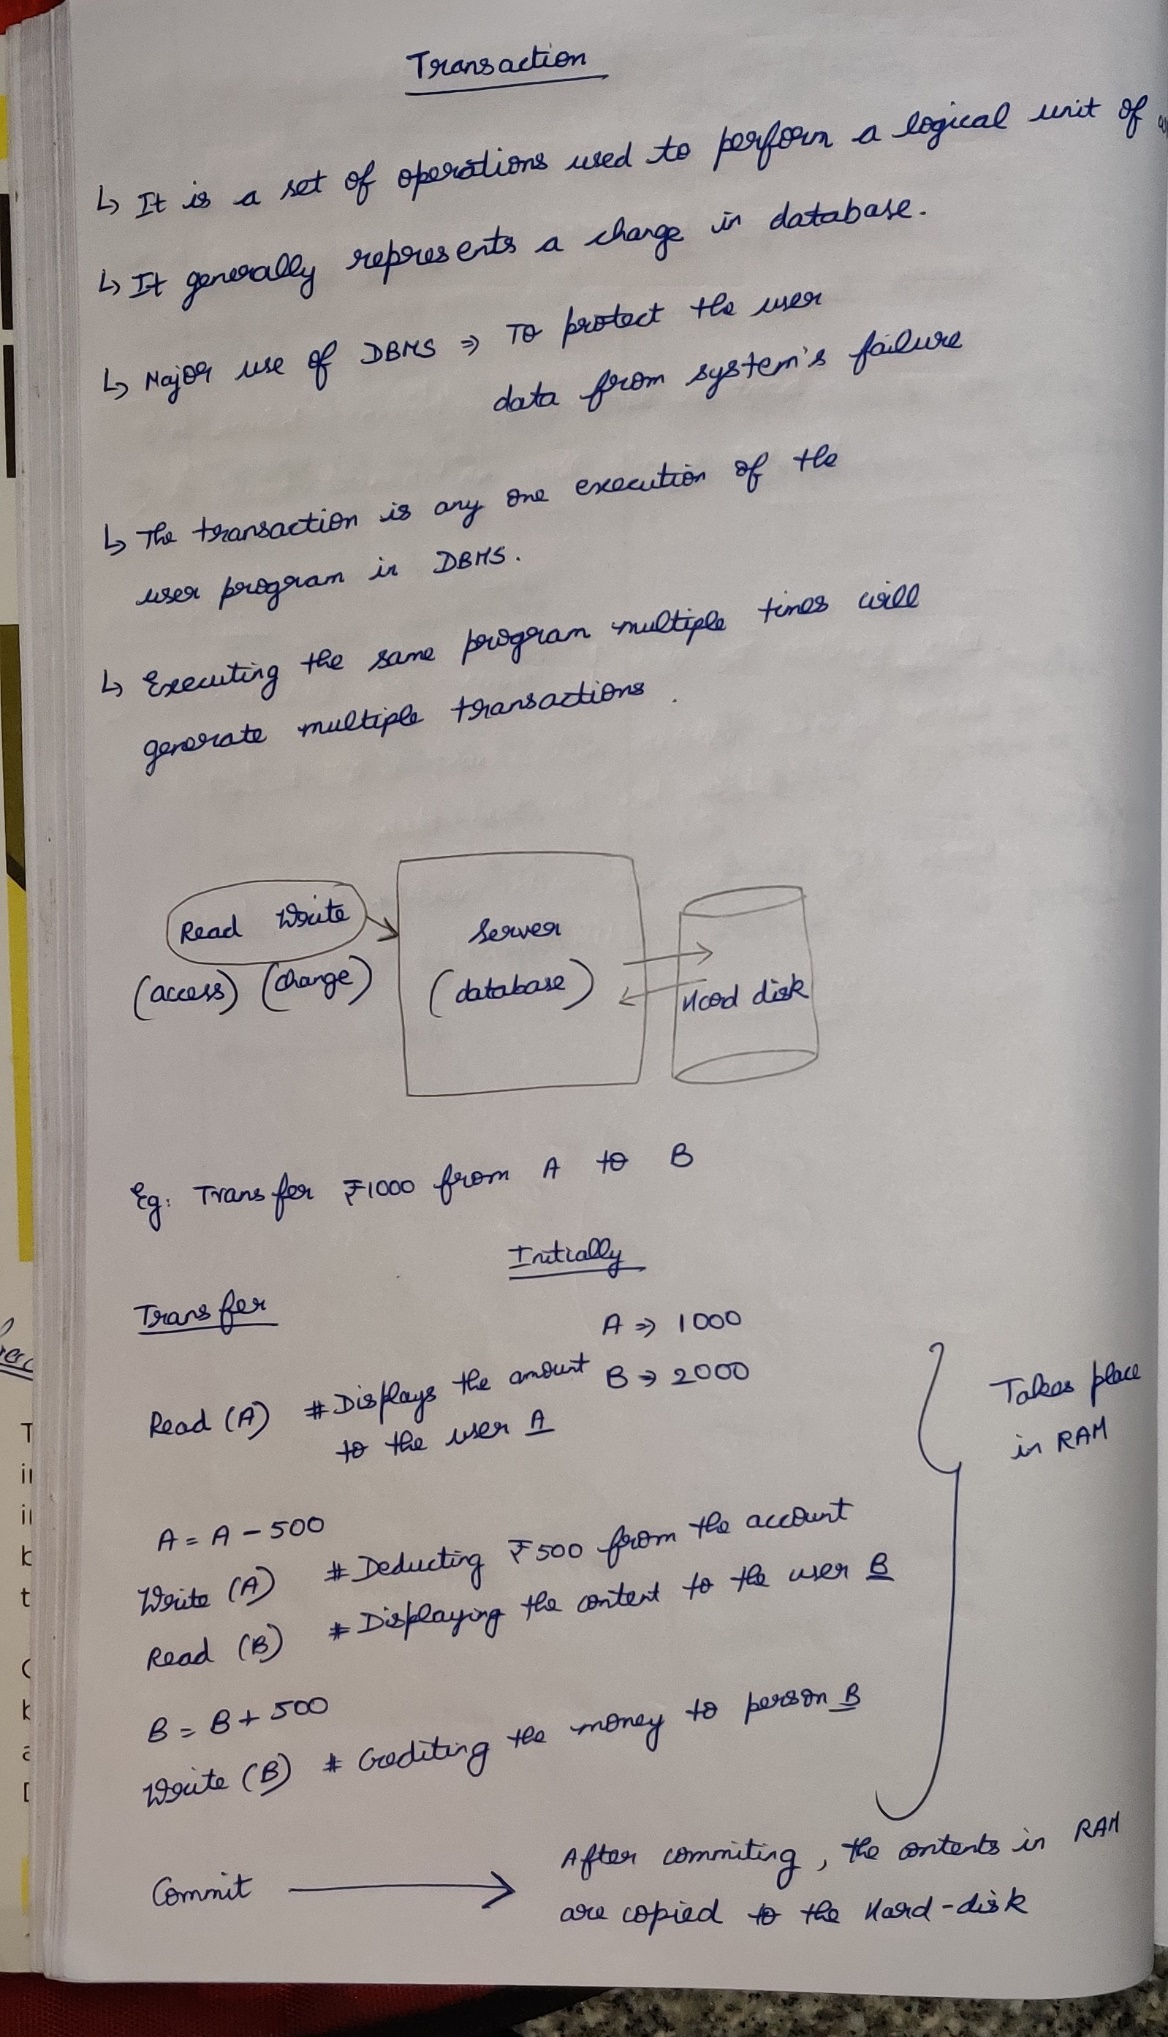 Transaction
↳ It is a set of operations used to perform a logical unit of
↳ It generally represents a change in database.
↳ Major use of DBMS ⇒ To protect the user
data from system's failure
↳ The transaction is any one execution of the
user program in DBMS.
↳ Executing the same program multiple times will
generate multiple transactions.
Read Write
(access) (change)
Server
(database)
Hard disk
Eg: Transfer ₹1000 from A to B
Initially
Transfer
A ⇒ 1000
B → 2000
Read (A) # Displays the amount
to the user A
Takes place
in RAM
A = A - 500
Write (A) # Deducting ₹500 from the account
Read (B) # Displaying the content to the user B
B = B + 500
Write (B) # Crediting the money to person B
Commit → After commiting, the contents in RAM
are copied to the Hard-disk